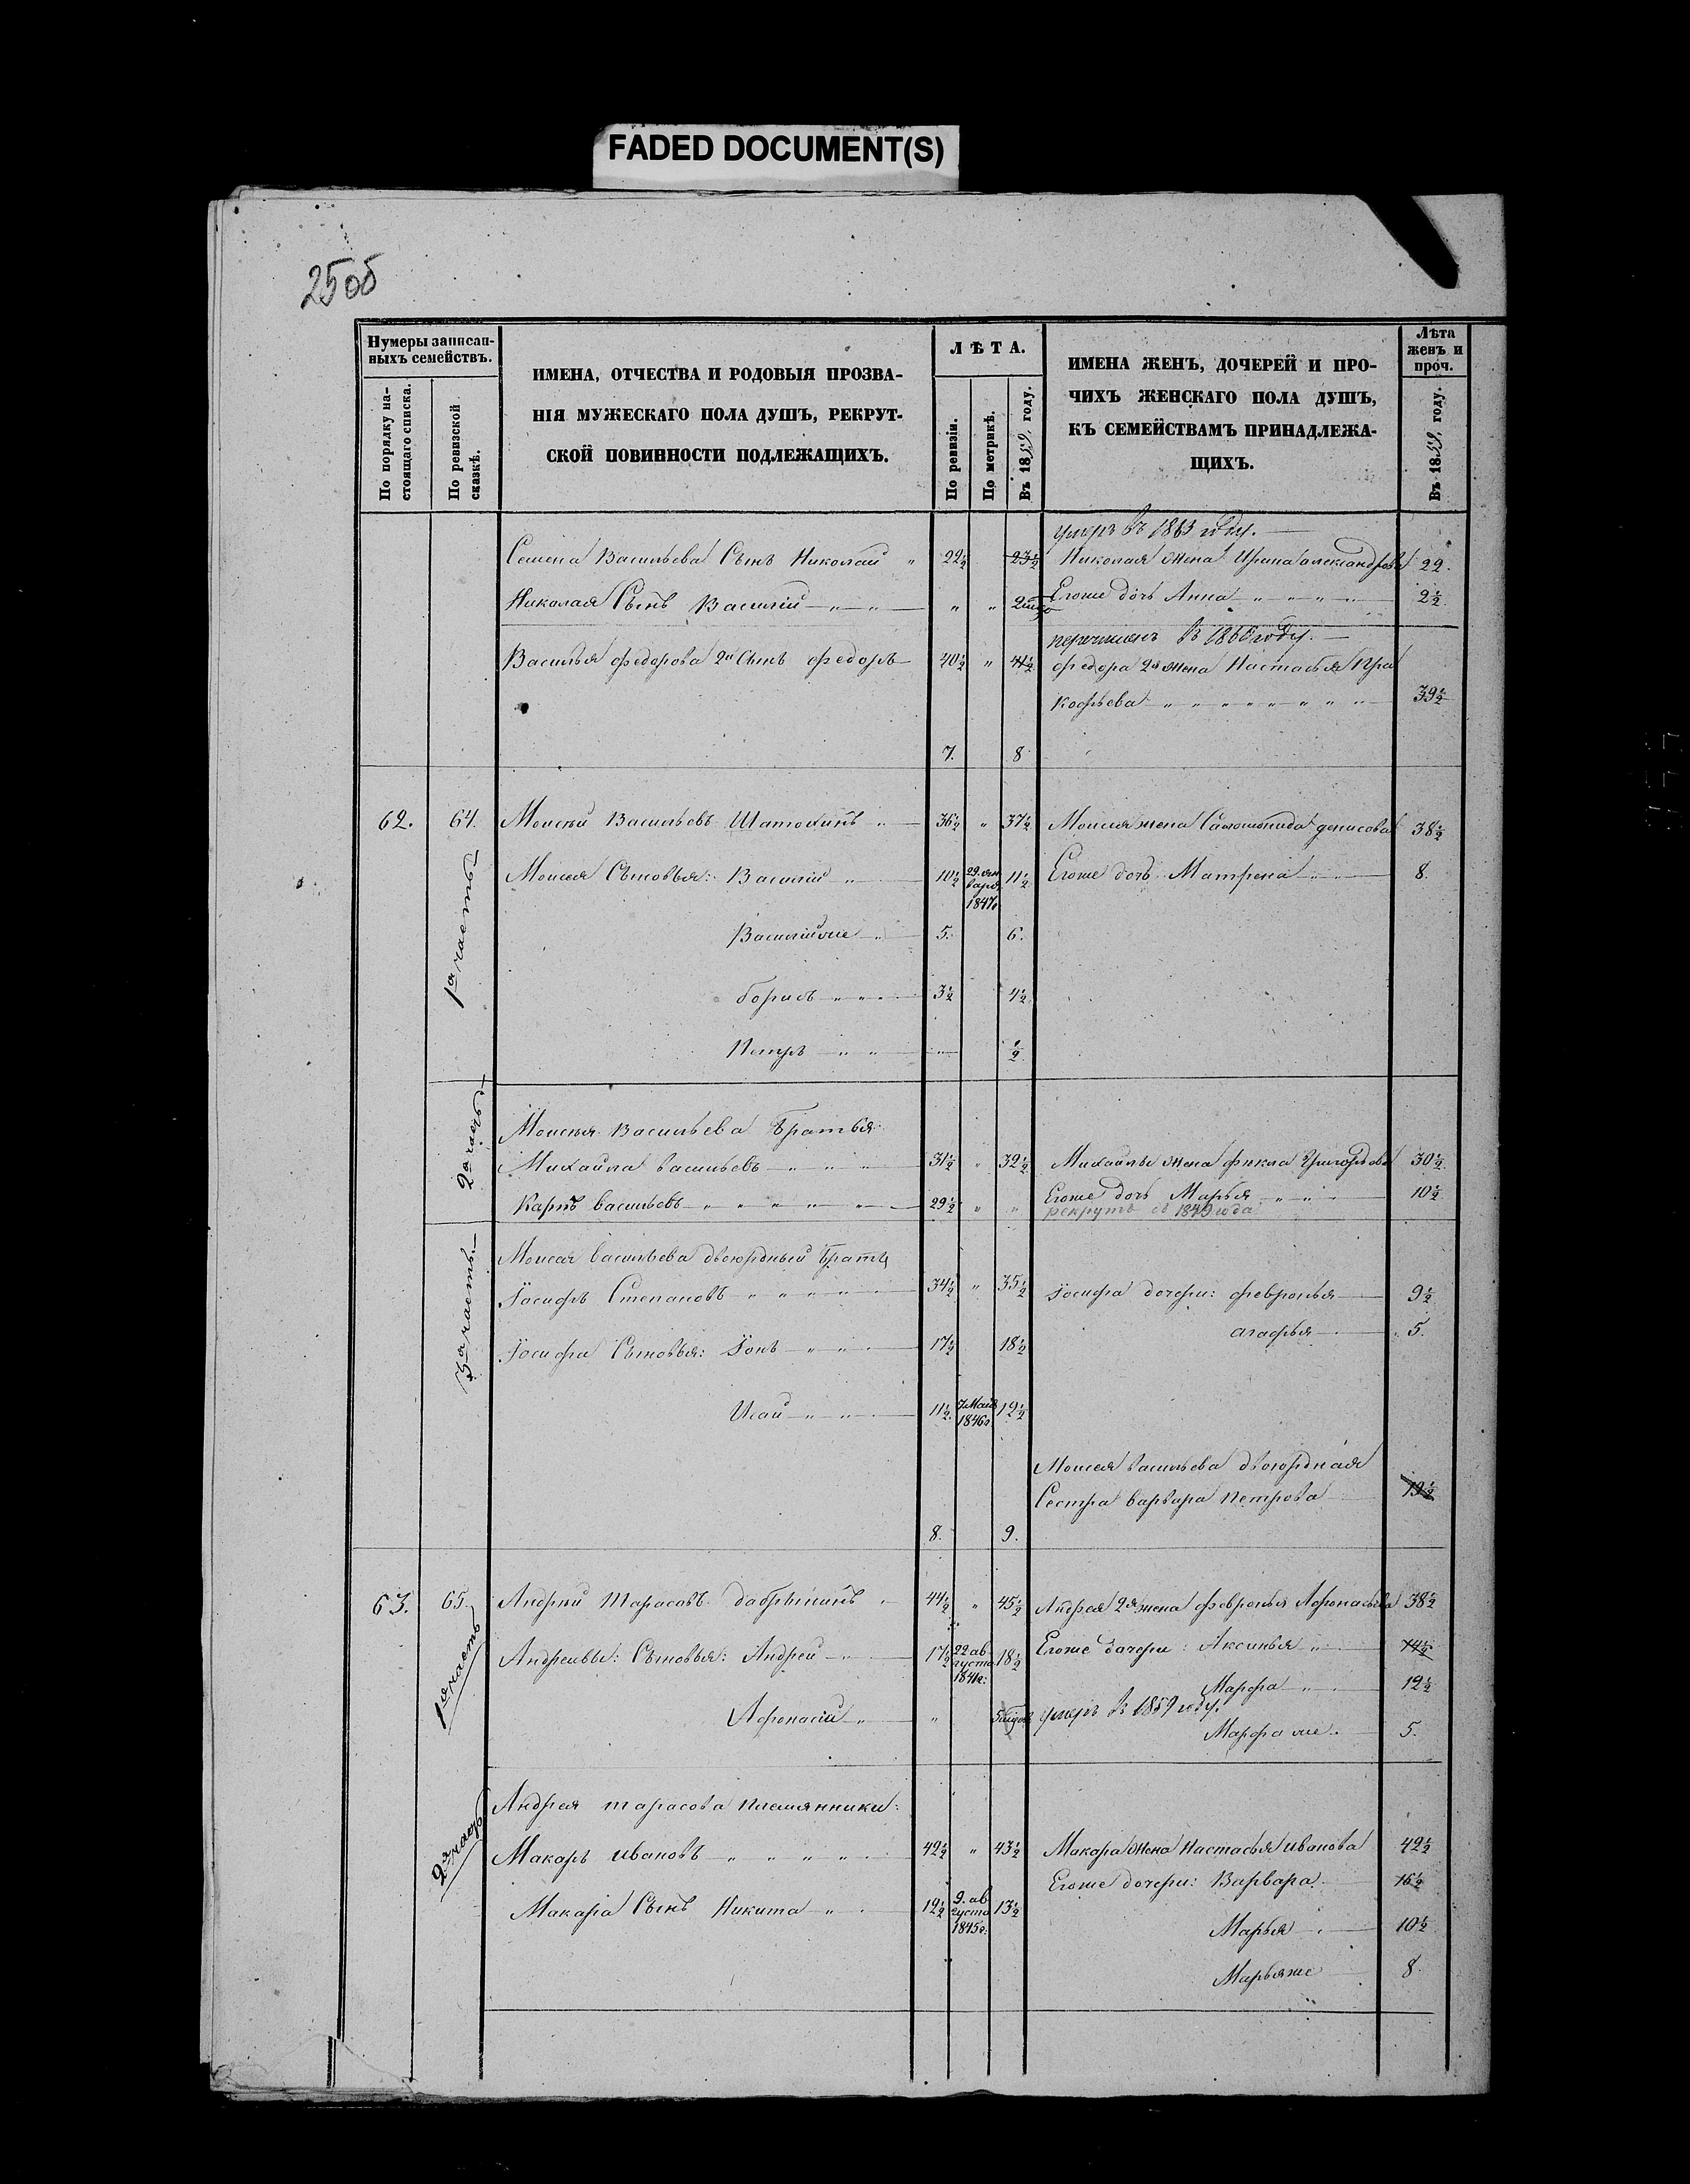 FADED DOCUMENT(S)
25об
Нумеры записан-
ныхъ семействъ.
По порядку на-
стоящаго списка.
По ревизской
сказкѣ.
ИМЕНА, ОТЧЕСТВА И РОДОВЫЯ ПРОЗВА-
НІЯ МУЖЕСКАГО ПОЛА ДУШЪ, РЕКРУТ-
СКОЙ ПОВИННОСТИ ПОДЛЕЖАЩИХЪ.
ЛѢТА.
По ревизіи.
По метрикѣ.
Въ 1859 году.
ИМЕНА ЖЕНЪ, ДОЧЕРЕЙ И ПРО-
ЧИХЪ ЖЕНСКАГО ПОЛА ДУШЪ,
КЪ СЕМЕЙСТВАМЪ ПРИНАДЛЕЖА-
ЩИХЪ.
Лѣта
женъ и
проч.
Въ 1859 году.
умеръ въ 1863 году.
Семена Васильева Сынъ Николай " 22½ 23½ Николая жена Ирина александрова 22.
Николая Сынъ Василий " " " " Егоже дочь Анна " " " " 2½
перечисленъ в 1860 году.
Василья федорова 2й Сынъ федоръ 40½ " 41½ федора 2я жена Настасья Пра
кофьева " " " " " " " " 39½
7. 8
62. 64. Моисей Васильевъ Шатохинъ " 36½ " 37½ Моисея жена Саломонида денисова 38½
1я часть
Моисея Сыновья: Василий " 10½ 29. ян
варя
1847г 11½ Егоже дочь Матрена " 8.
Василийже " 5. 6.
борисъ " " " 3½ 4½
Петръ " " ½
2я часть
Моисея Васильева братья
Михайла васильевъ " " " 31½ " 32½ Михайлы жена фекла Григорьева 30½
Карпъ васильевъ " " " " " 29½ " " Егоже дочь Марья " " 10½
рекрутъ съ 1849 года
3я часть
Моисея васильева двоюрдный братъ
Іосифъ Степановъ " " " " " 34½ " 35½ Іосифа дочери: февронья 9½
агафья 5.
Іосифа Сыновья: Іонъ " " 17½ 18½
Исай " " 11½ 7 Мая
1846г 12½
Моисея васильева двоюрдная
Сестра варвара петрова 19½
8. 9.
63. 65. Андрей Тарасовъ добрынинъ 44½ " 45½ Андрея 2я жена февронья Афонасьева 38½
1я часть
Андреевы: Сыновья: Андрей " 17½ 22 ав
густа
1841г: 18½ Егоже дочери: Аксинья " 14½
Марфа " 12½
Афонасий " " умеръ в 1859 году.
Марфа же 5.
2я часть
Андрея тарасова племянники:
Макаръ ивановъ " " " " " 42½ " 43½ Макара жена настасья иванова 42½
Егоже дочери: Варвара 16½
Макара Сынъ Никита " 12½ 9. ав
густа
1845г: 13½
Марья 10½
Марьяже 8.